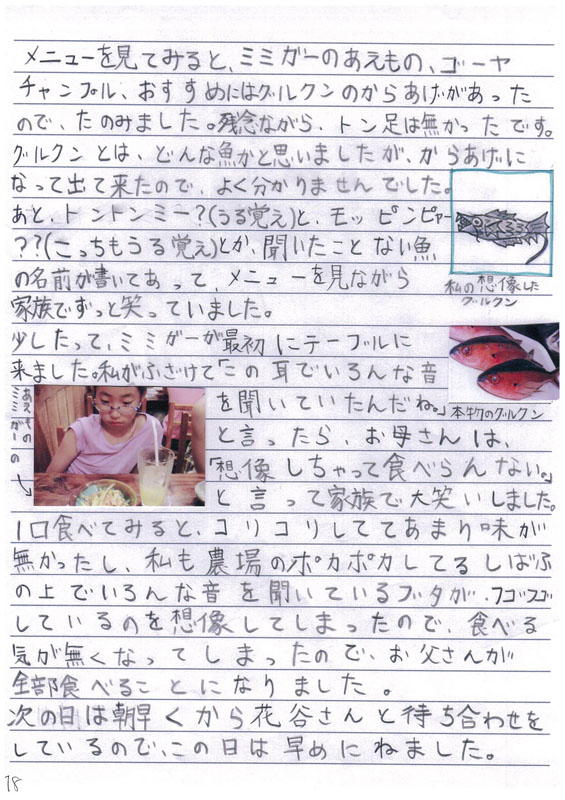 メニューを見てみると、ミミガーのあえもの、ゴーヤ
チャンプル、おすすめにはグルクンのからあげがあった
ので、たのみました。残念ながら、トン足は無かったです。
グルクンとは、どんな魚かと思いましたが、からあげに
なって出て来たので、よく分かりませんでした。
あと、トントンミー?(うる覚え)と、モッピンピャー
??(こっちもうる覚え)とか、聞いたことない魚
の名前が書いてあって、メニューを見ながら
家族でずっと笑っていました。
私の想像した
グルクン
少したって、ミミガーが最初にテーブルに
来ました。私がふざけて「この耳でいろんな音
を聞いていたんだね。」
と言ったら、お母さんは、
「想像しちゃって食べらんない。」
と言って家族で大笑いしました。
本物のグルクン
ミミガーの
あえもの
1口食べてみると、コリコリしててあまり味が
無かったし、私も農場のポカポカしてるしばふ
の上でいろんな音を聞いているブタが、フゴフゴ
しているのを想像してしまったので、食べる
気が無くなってしまったので、お父さんが
全部食べることになりました。
次の日は朝早くから花谷さんと待ち合わせを
しているので、この日は早めにねました。
18